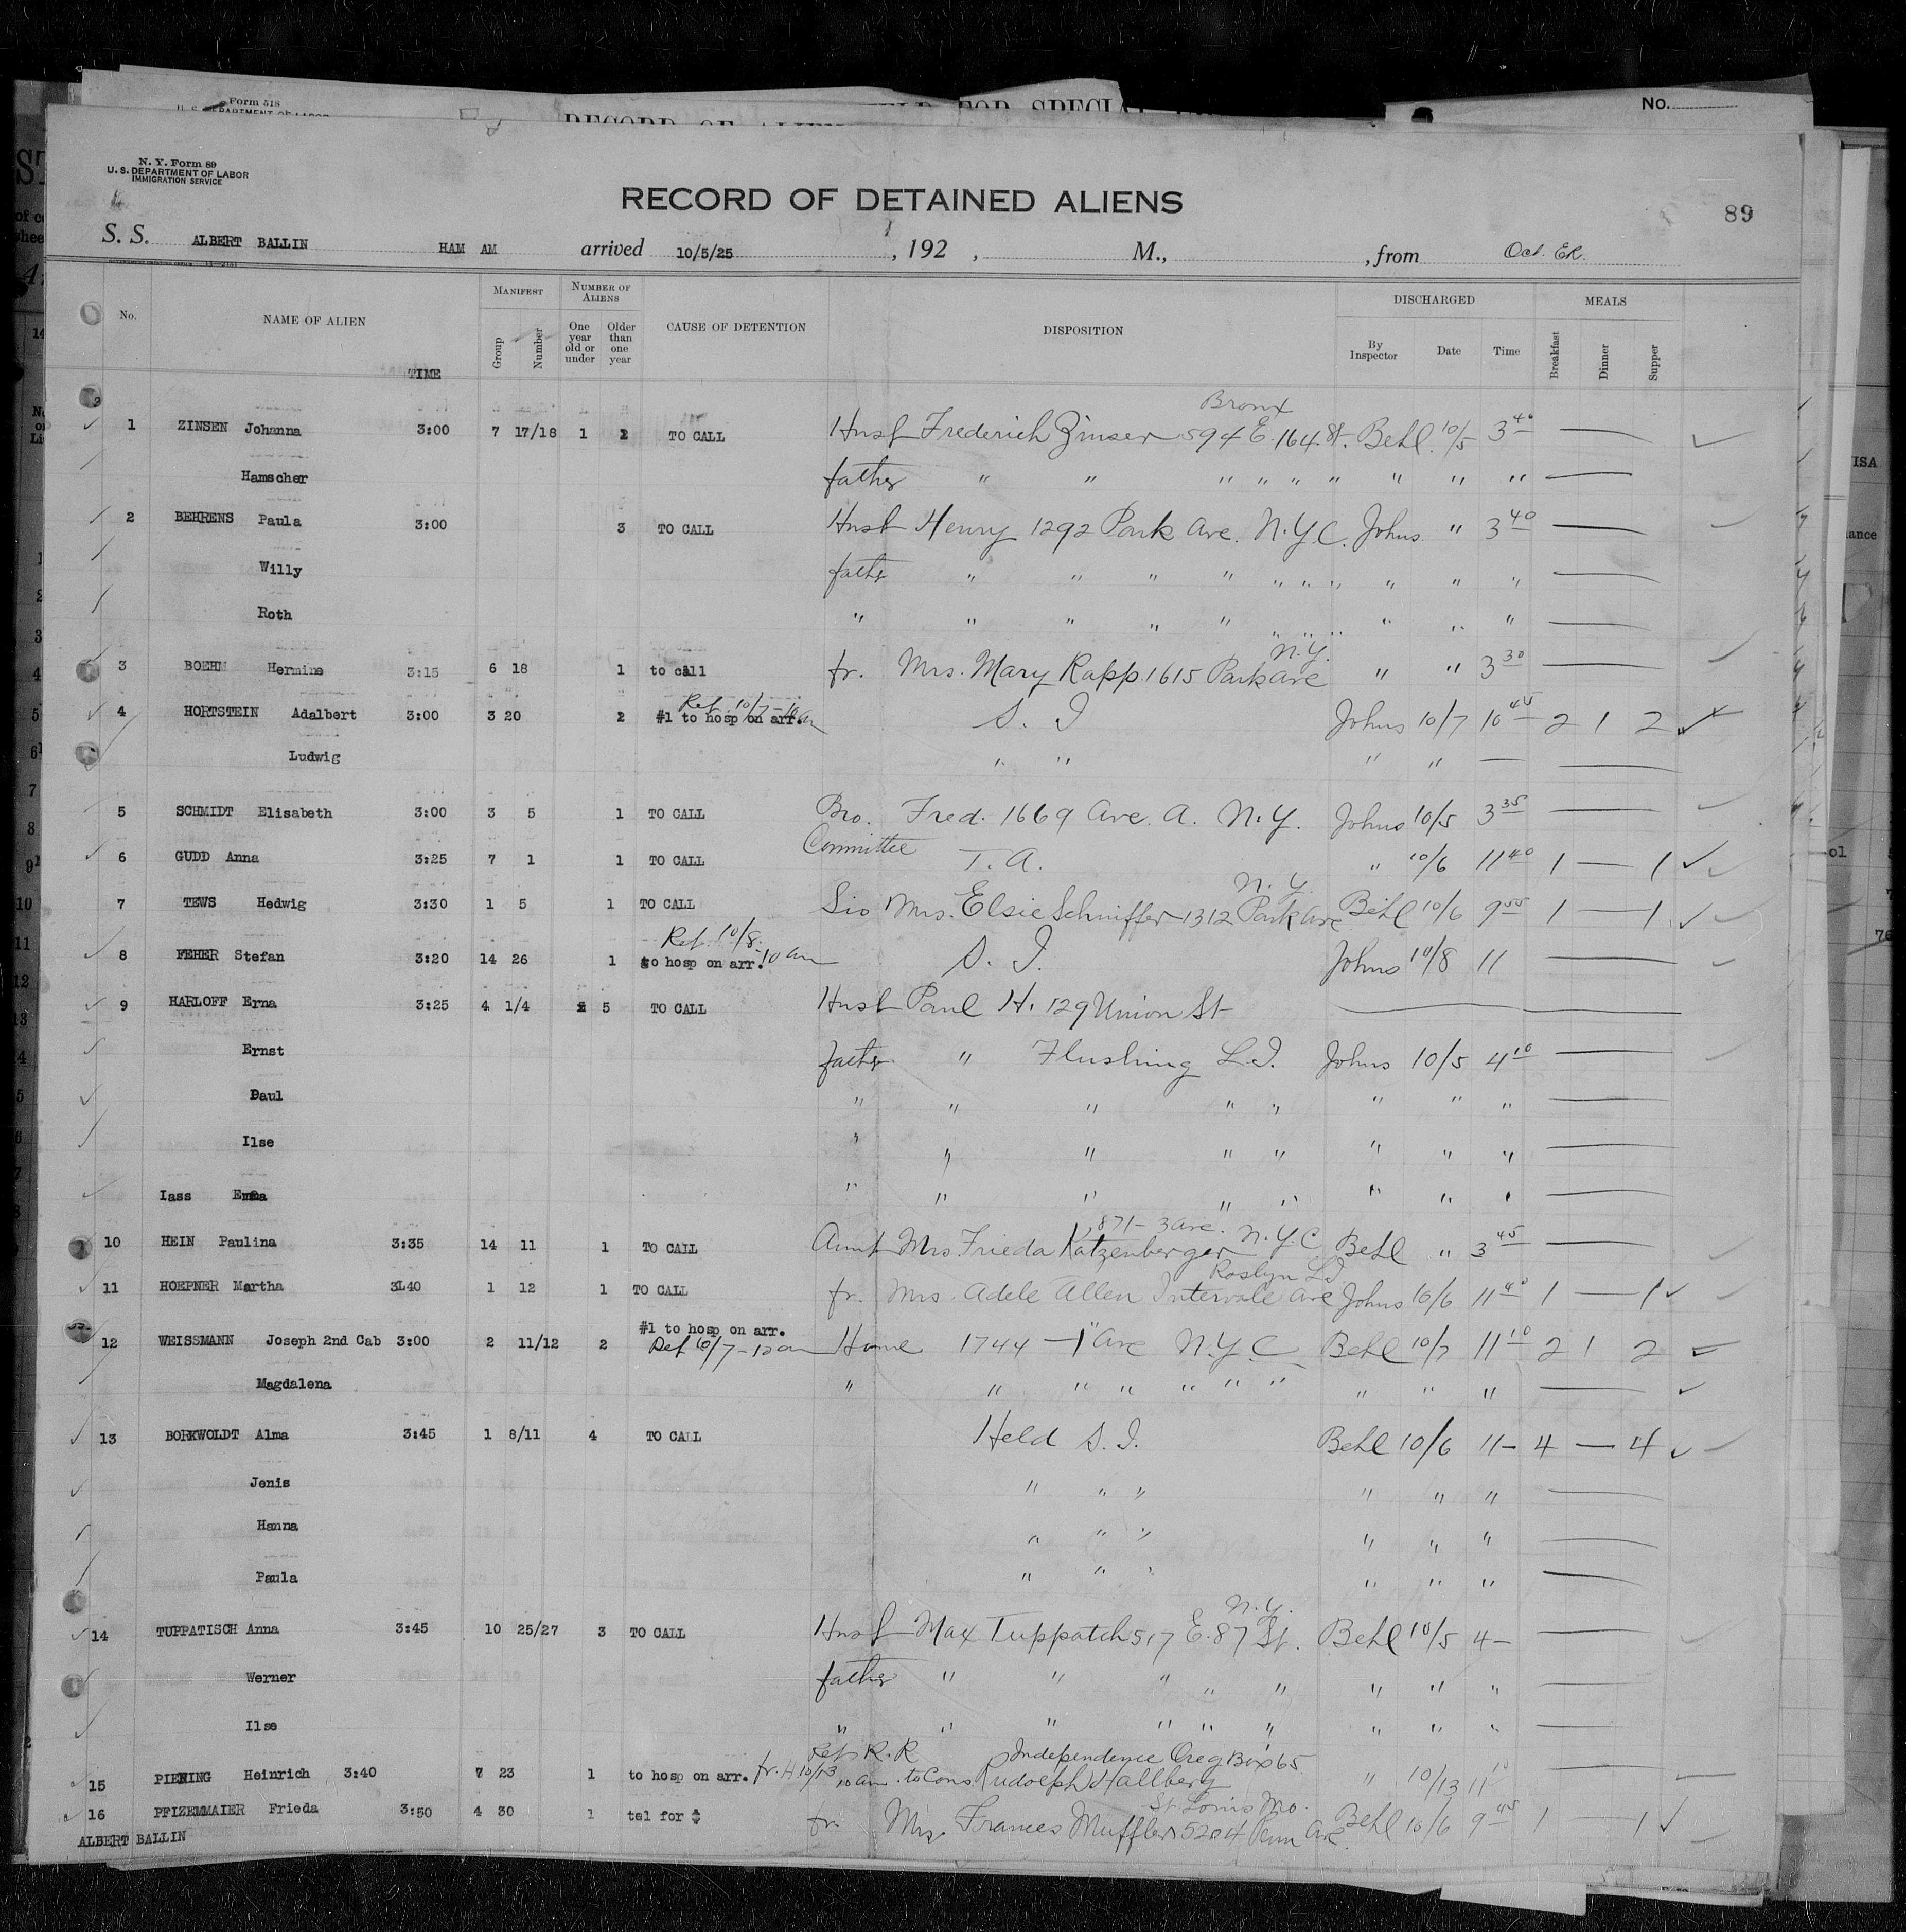 Form 518
U. S. DEPARTMENT OF LABOR
No.
N. Y. Form 89
U. S. DEPARTMENT OF LABOR
IMMIGRATION SERVICE
RECORD OF DETAINED ALIENS
89
S. S. ALBERT BALLIN HAM AM arrived 10/5/25 , 192 , M., , from Oct. ER.
No. NAME OF ALIEN TIME MANIFEST Group Number NUMBER OF ALIENS One year old or under Older than one year CAUSE OF DETENTION DISPOSITION DISCHARGED By Inspector Date Time MEALS Breakfast Dinner Supper
Bronx
1 ZINSEN Johanna 3:00 7 17/18 1 2 TO CALL Husb Frederich Zinser 594 E. 164 St. Behl. 10/5 3 40 —
Hamscher father " " " " " " " " " —
2 BEHRENS Paula 3:00 3 TO CALL Husb Henry 1292 Park Ave. N.Y.C. Johns " 3 40 —
Willy father " " " " " " " " " " —
Roth " " " " " " " " " " " —
N.Y.
3 BOEHM Hermine 3:15 6 18 1 to call fr. Mrs. Mary Rapp 1615 Park Ave " " 3 30 —
Ret. 10/7 - 10 am
4 HORTSTEIN Adalbert 3:00 3 20 2 #1 to hosp on arr. S. I Johns 10/7 10 45 2 1 2
Ludwig " " " " — —
5 SCHMIDT Elisabeth 3:00 3 5 1 TO CALL Bro. Fred. 1669 Ave. A. N.Y. Johns 10/5 3 35 —
Committee
6 GUDD Anna 3:25 7 1 1 TO CALL T. A. " 10/6 11 40 1 — 1
N.Y.
7 TEWS Hedwig 3:30 1 5 1 TO CALL Sis Mrs. Elsie Schniffer 1312 Park Ave Behl 10/6 9 55 1 — 1
Ret. 10/8.
8 FEHER Stefan 3:20 14 26 1 to hosp on arr. 10 am S. I. Johns 10/8 11 —
9 HARLOFF Erna 3:25 4 1/4 5 TO CALL Husb Paul H. 129 Union St —
Ernst father " Flushing L.I. Johns 10/5 4 10 —
Paul " " " " " " " " —
Ilse " " " " " " " " —
Iass Emma " " " " " " " " —
871 - 3 Ave.
10 HEIN Paulina 3:35 14 11 1 TO CALL Aunt Mrs Frieda Katzenberger N.Y.C. Behl " 3 45 —
Roslyn L.I
11 HOEPNER Martha 3L40 1 12 1 TO CALL fr. Mrs. Adele Allen Intervale Ave Johns 10/6 11 40 1 — 1
#1 to hosp on arr.
12 WEISSMANN Joseph 2nd Cab 3:00 2 11/12 2 Ret 10/7 - 10 am Home 1744 - 1" Ave N.Y.C Behl 10/7 11 10 2 1 2
Magdalena " " " " " " " " " " —
13 BORKWOLDT Alma 3:45 1 8/11 4 TO CALL Held S. I. Behl 10/6 11- 4 — 4
Jenis " " " " " " —
Hanna " " " " " " —
Paula " " " " " " —
N.Y.
14 TUPPATISCH Anna 3:45 10 25/27 3 TO CALL Husb Max Tuppatch 517 E. 87 St. Behl 10/5 4 — —
Werner father " " " " " " " " —
Ilse " " " " " " " " " —
Ret R. R Independence Oreg Box 65
15 PIENING Heinrich 3:40 7 23 1 to hosp on arr. fr. H 10/13 10 am. to Cons Rudolph Hallberg " 10/13 11 10 —
St. Louis Mo.
16 PFIZEMMAIER Frieda 3:50 4 30 1 tel for $ fr. Mrs. Frances Muffler 5204 Penn Ave Behl 10/6 9 45 1 — 1
ALBERT BALLIN